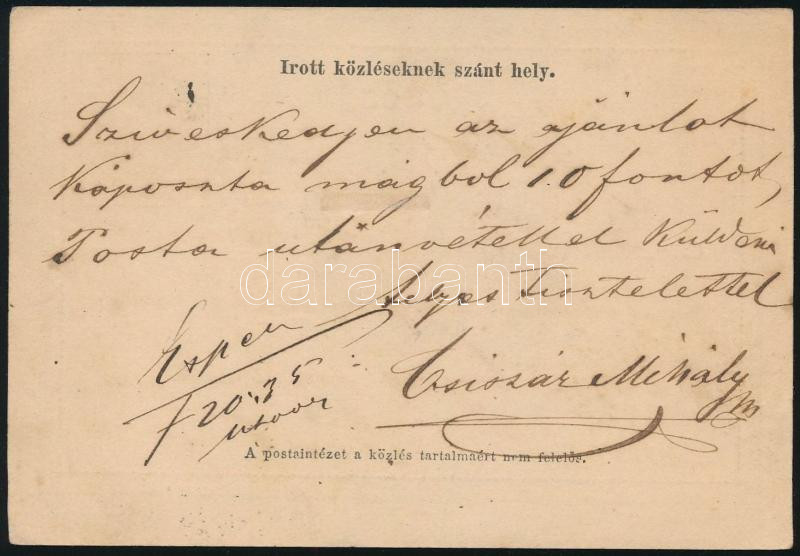 Irott közléseknek szánt hely.
Sziveskedjen az ajánlot
Káposzta mag ból 10 fontot,
Posta utánvétellel Küldeni
darabanth
Tisztelettel
Csiszár Mihály
20.35
A postaintézet a közlés tartalmáért nem felelős.